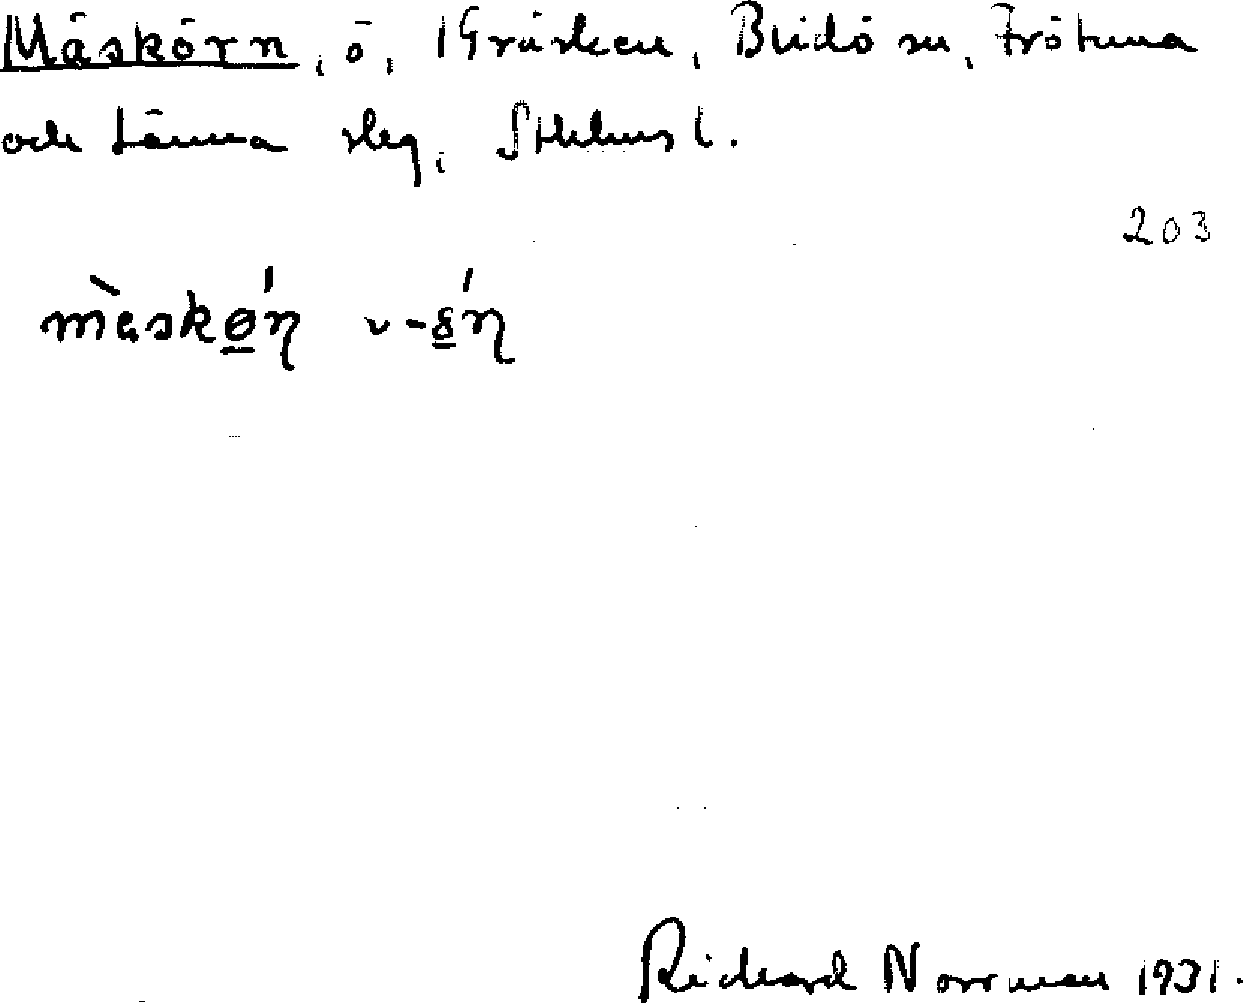 Måskörn, ö, I Gräsken, Blidö sn, Frötuna
och Länna slg, Sthlms l.
203
mèskǿη v-ǿη
Richard Norrman 1931.